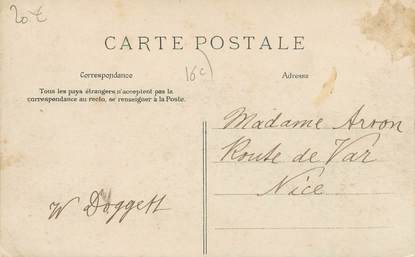 20€
CARTE POSTALE
Correspondance
16c
Adresse
Tous les pays étrangers n'acceptent pas la
correspondance au recto, se renseigner à la Poste.
Madame Aroon
Route de Var
Nice
W Doggett